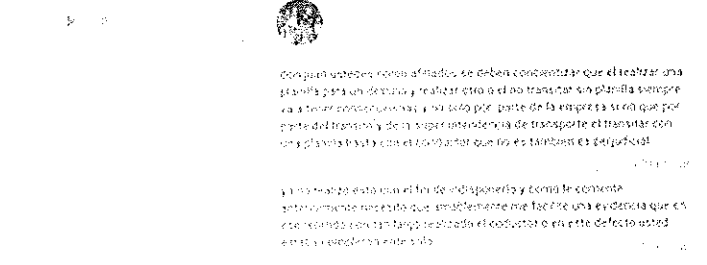 don juan ustedes como afiliados se deben concientizar que el realizar una
planilla para un destino y realizar otro o el no transitar sin planilla siempre
va a tener consecuencias y no solo por parte de la empresa si no que por
parte del transito y de la super intendencia de transporte el transitar con
una planilla hasta con el conductor que no es tambien es perjudicial
yo no realizo esto con el fin de indisponerlo y como le comente
anteriormente necesito que amablemente me facilite una evidencia que en
ese recorrido tan largo realizado el coductor o en este defecto usted